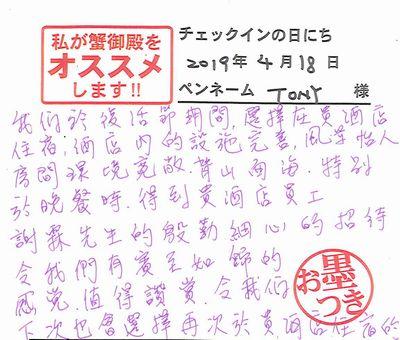 私が蟹御殿を
オススメ
します!!
チェックインの日にち
2019年 4月18日
ペンネーム TONY 様
我们於復活節期間，選擇在貴酒店
住宿；酒店內的設施完善，風景怡人
房間環境寬敞．背山面海．特別
於晚餐時．得到貴酒店員工
謝霖先生的殷勤細心的招待
令我們有賓至如歸的
感覚．值得讚賞．令我們
下次也會選擇再次於貴酒店住宿的
墨
おつき